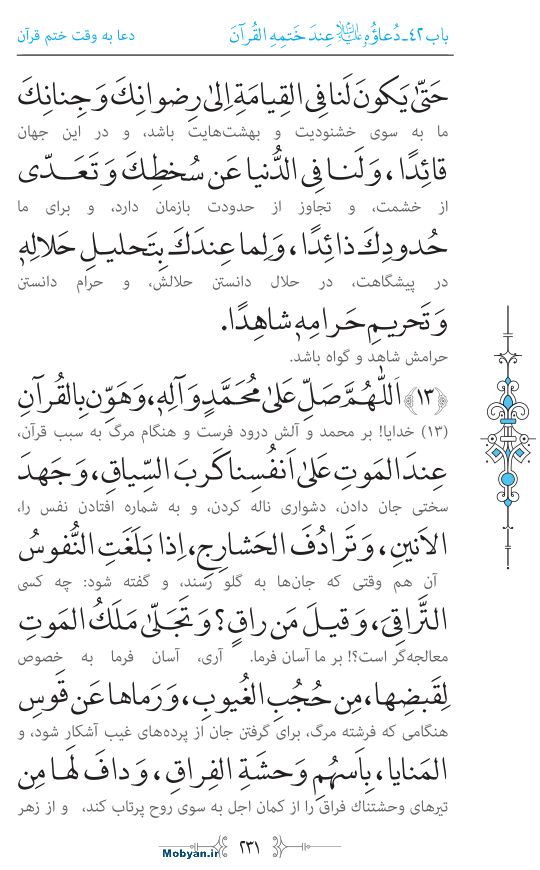 باب ۴۲ـ دُعاؤُهُ عِندَ خَتمِهِ القُرآنَ
دعا به وقت ختم قرآن
حَتّىٰ يَكونَ لَنا فِي القِيامَةِ اِلىٰ رِضوانِكَ وَ جِنانِكَ
ما به سوی خشنودیت و بهشت‌هایت باشد، و در این جهان
قائِدًا، وَ لَنا فِي الدُّنيا عَن سُخطِكَ وَ تَعَدّى
از خشمت، و تجاوز از حدودت بازمان دارد، و برای ما
حُدودِكَ ذائِدًا، وَ لِما عِندَكَ بِتَحليلِ حَلالِهٖ
در پیشگاهت، در حلال دانستن حلالش، و حرام دانستن
وَ تَحريمِ حَرامِهٖ شاهِدًا.
حرامش شاهد و گواه باشد.
﴿۱۳﴾ اَللّٰهُمَّ صَلِّ عَلىٰ مُحَمَّدٍ وَ آلِهٖ، وَ هَوِّن بِالقُرآنِ
(۱۳) خدایا! بر محمد و آلش درود فرست و هنگام مرگ به سبب قرآن،
عِندَ المَوتِ عَلىٰ اَنفُسِنا كَربَ السِّياقِ، وَ جَهدَ
سختی جان دادن، دشواری ناله کردن، و به شماره افتادن نفس را،
الاَنينِ، وَ تَرادُفَ الحَشارِجِ، اِذا بَلَغَتِ النُّفوسُ
آن هم وقتی که جان‌ها به گلو رسند، و گفته شود: چه کسی
التَّراقِيَ، وَ قيلَ مَن راقٍ؟ وَ تَجَلّىٰ مَلَكُ المَوتِ
معالجه‌گر است؟! بر ما آسان فرما. آری، آسان فرما به خصوص
لِقَبضِها، مِن حُجُبِ الغُيوبِ، وَ رَماها عَن قَوسِ
هنگامی که فرشته مرگ، برای گرفتن جان از پرده‌های غیب آشکار شود، و
المَنايا، بِاَسهُمِ وَحشَةِ الفِراقِ، وَ دافَ لَها مِن
تیرهای وحشتناك فراق را از کمان اجل به سوی روح پرتاب کند، و از زهر
۲۳۱
Mobyan.ir